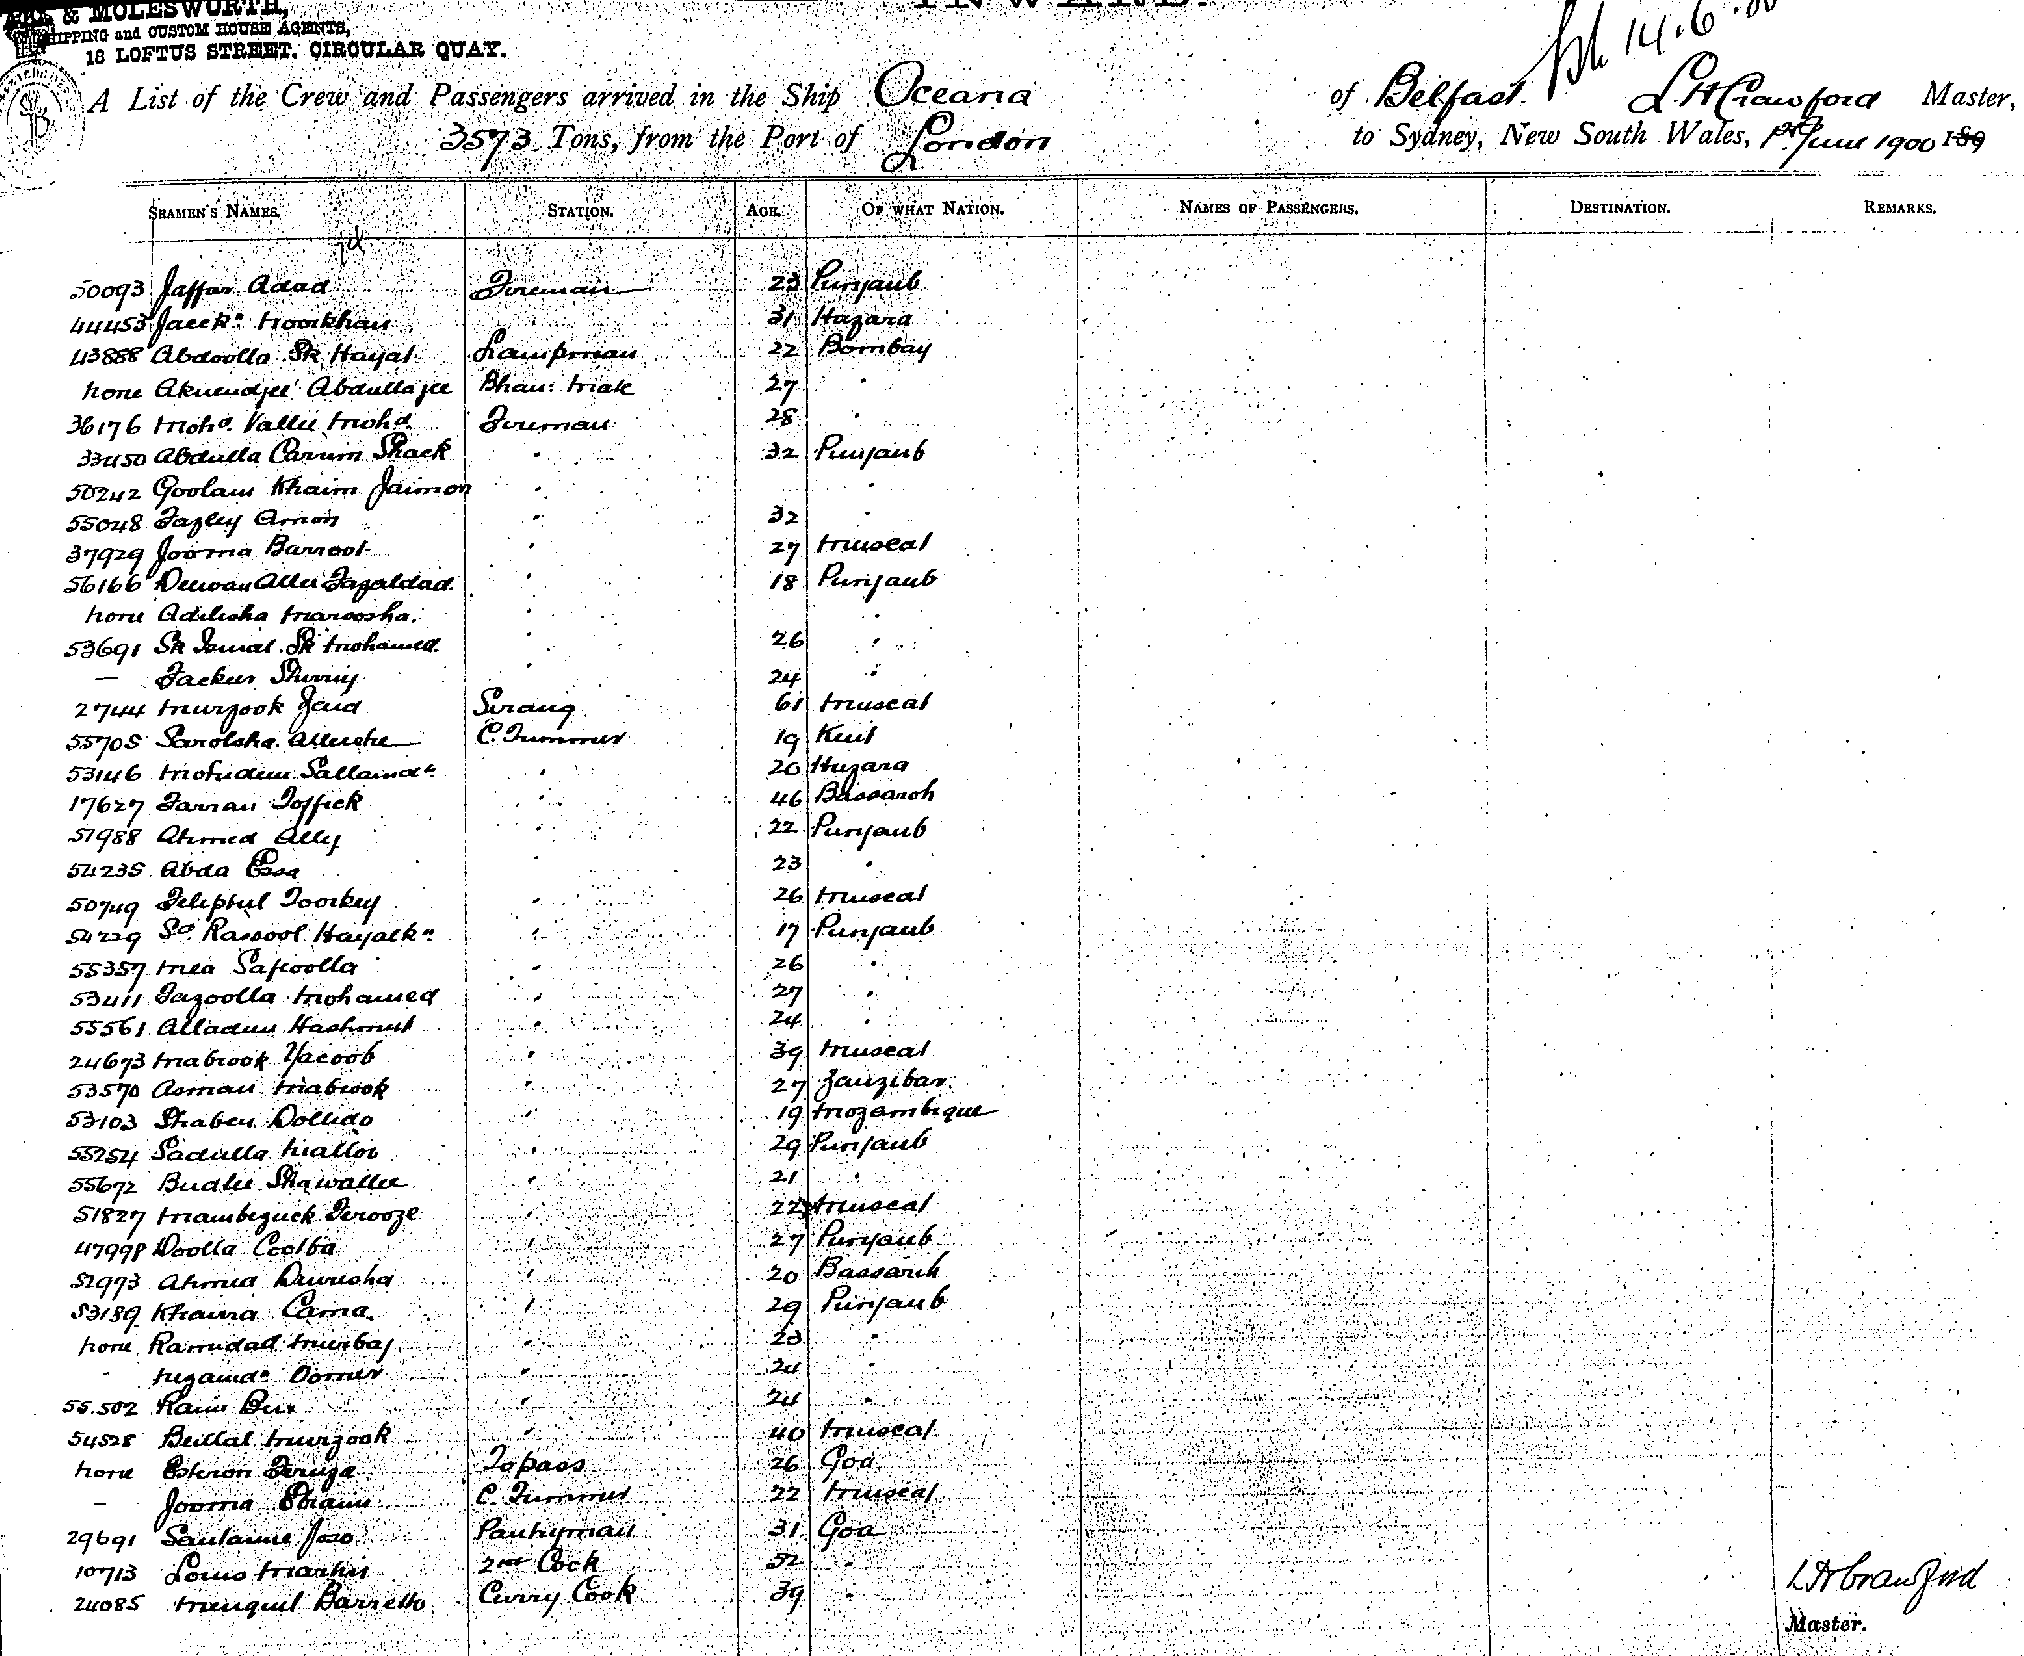 & MOLESWORTH,
SHIPPING and CUSTOM HOUSE AGENTS,
18 LOFTUS STREET, CIRCULAR QUAY.
INWARD.
14.6.00
A List of the Crew and Passengers arrived in the Ship Oceana of Belfast. L H Crawford Master,
3573 Tons, from the Port of London to Sydney, New South Wales, 1st June 1900 189
SEAMEN'S NAMES. STATION. AGE. OF WHAT NATION. NAMES OF PASSENGERS. DESTINATION. REMARKS.
50093 Jaffar Adad Fireman 23 Punjaub
44453 Jaeekn Moorkhan 31 Hazara
43888 Abdoolla Sk Hayat Lampman 22 Bombay
none Abdullajee Bhan: Mate 27 "
36176 Mohd. Vallee Mohd. Fireman 28 "
33450 Abdulla Carrim Shack " 32 Punjaub
50242 Goolam Khaim Jaimon " "
55048 Fazley Amon " 32
37929 Jooma Barroot " 27 Muscat
56166 Dewan Allee Fazaldad " 18 Punjaub
none Adilsha Maroosha. " "
53691 Sk Ismal Sk Mohamed " 26 "
— Fackeer " 24 "
2744 Murzook Zaid Serang 61 Muscat
55705 C. Trimmer 19
53146 " 20 Huzara
17627 Farran Toffick " 46 Bassaroh
51988 Ahmed Ally " 22 Punjaub
54235 Abda Essa " 23 "
50749 Toorkey " 26 Muscat
54229 Sd. Rassool Hayatkn " 17 Punjaub
55357 Mea Safioolla " 26 "
53411 Fazoolla Mohamed " 27 "
55561 Alladin Hashmut " 24 "
24673 Mabrook Yacoob " 39 Muscat
53570 Asman Mabrook " 27 Zanzibar
53103 Shaben " 19 Mozambique
55254 Sadulla " 29 Punjaub
55672 Budlee Shawallee " 21 "
51827 Ferooze " 22 Muscat
47998 Doolla Coolba " 27 Punjaub
52973 Ahmed " 20 Bassarih
53189 Khaira Cama " 29 Punjaub
none Ramdad " 23 "
" Nezamdn Oomer " 24 "
55.502 Raim Bux " 24 "
54528 Beillal Murzook " 40 Muscat
none Topass 26 Goa
— Jooma Ebram C. Trimmer 22 Muscat
29691 Santanne Jose Pantryman 31 Goa
10713 Louis Martin 2nd Cook 52 "
24085 Barretto Curry Cook 39 "
L H Crawford
Master.